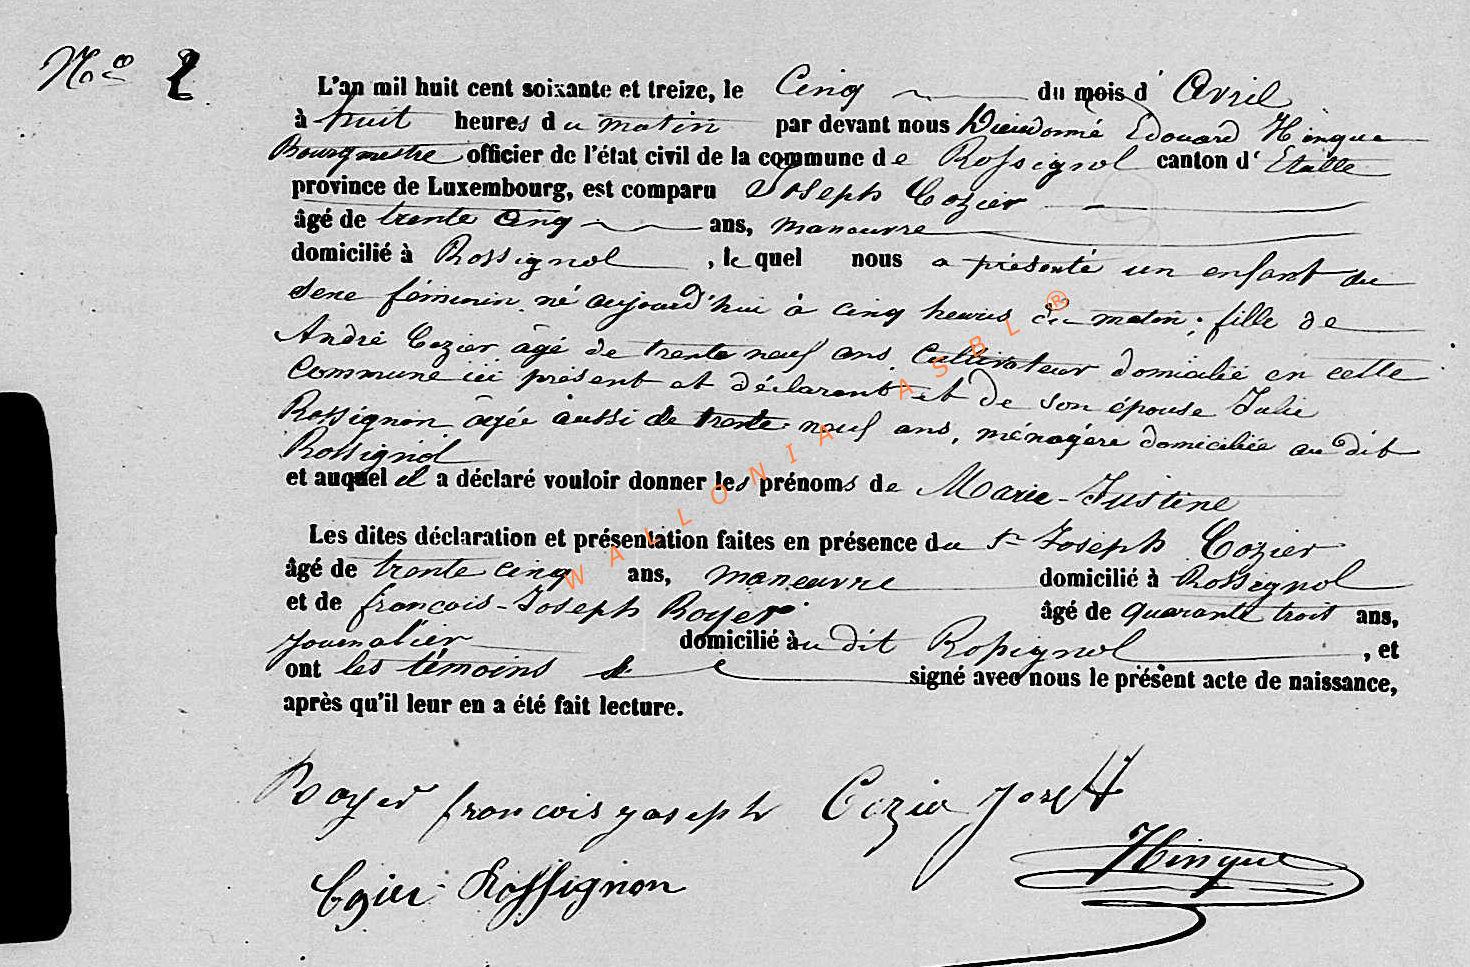 No 2
L'an mil huit cent soixante et treize, le Cinq du mois d' Avril
à huit heures du matin par devant nous Dieudonné Edouard Hinque
Bourgmestre officier de l'état civil de la commune de Rossignol canton d' Etalle
province de Luxembourg, est comparu Joseph Cozier
âgé de trente cinq ans, manœuvre
domicilié à Rossignol, le quel nous a présenté un enfant du
sexe féminin né aujourd'hui à cinq heures du matin; fille de
André Cozier âgé de trente neuf ans Cultivateur domicilié en cette
Commune ici présent et déclarant et de son épouse Julie
Rossignon âgée aussi de trente neuf ans, ménagère domiciliée au dit
Rossignol
et auquel il a déclaré vouloir donner les prénoms de Marie-Justine
Les dites déclaration et présentation faites en présence du Sr Joseph Cozier
âgé de trente cinq ans, manœuvre domicilié à Rossignol
et de françois-Joseph Royer âgé de quarante trois ans,
journalier domicilié au dit Rossignol, et
ont les témoins signé avec nous le présent acte de naissance,
après qu'il leur en a été fait lecture.
Royer françois joseph Cozier Joseph
Hinque
Cozier Rossignon
WALLONIA ASBL ®